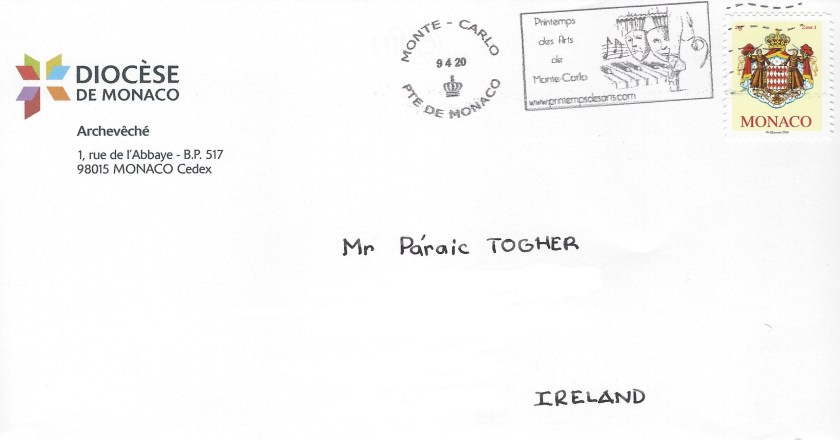 DIOCÈSE
DE MONACO
Archevêché
1, rue de l'Abbaye - B.P. 517
98015 MONACO Cedex
MONTE - CARLO
9 4 20
PTE DE MONACO
Printemps
des Arts
de
Monte-Carlo
www.printempsdesarts.com
MONACO
Mr Páraic TOGHER
IRELAND